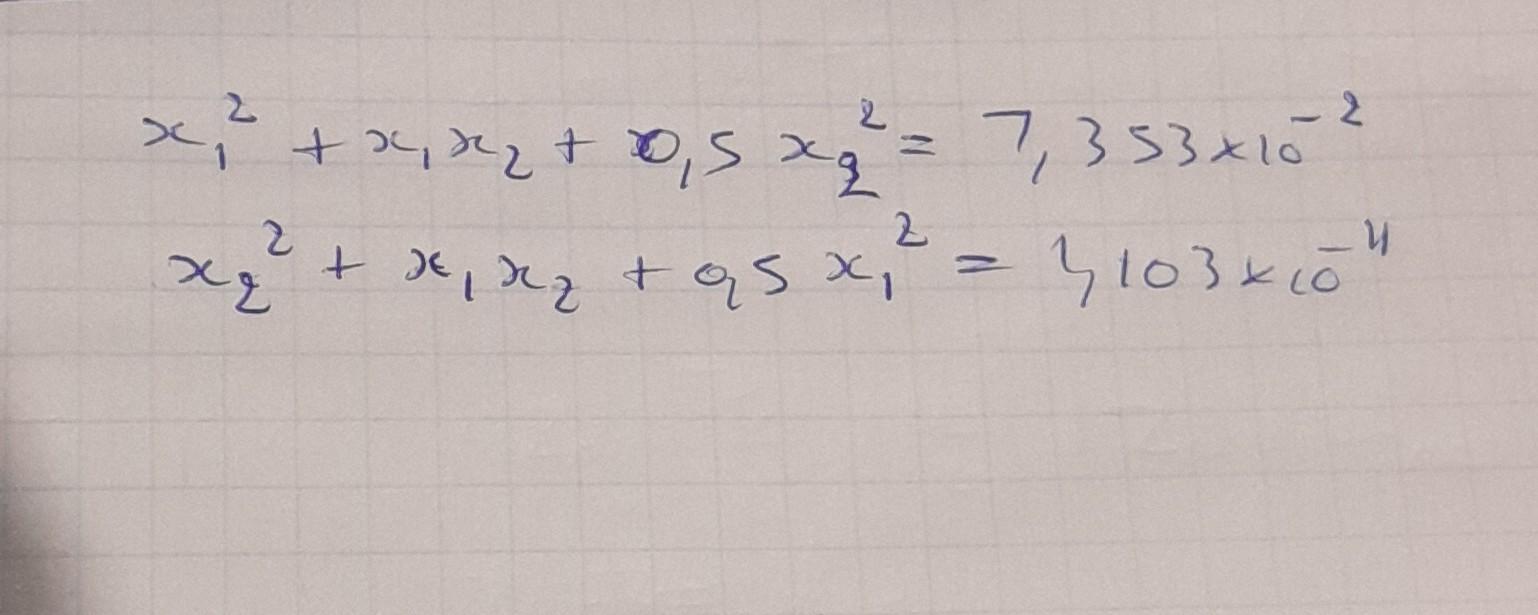 x₁² + x₁x₂ + 0,5 x₂² = 7,353×10⁻²
x₂² + x₁x₂ + 0,5 x₁² = 1,103×10⁻⁴